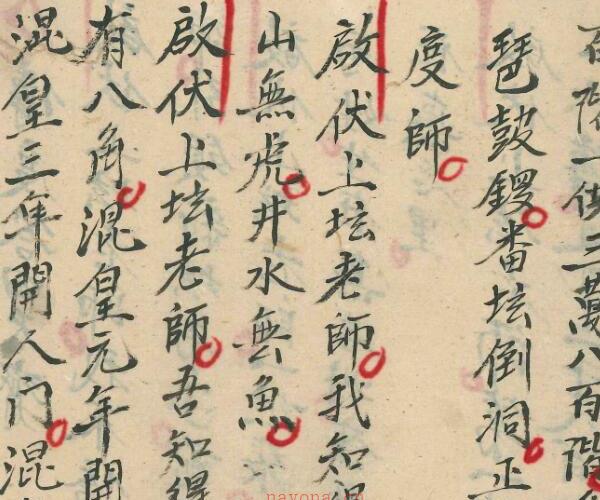 百階一供三萬八百階
琶鼓鑼番坛倒洞正
度師
啟伏上坛老師我知得
山無虎井水無魚
啟伏上坛老師吾知得
有八角混皇元年開
混皇三年開人门混
nayona.cn